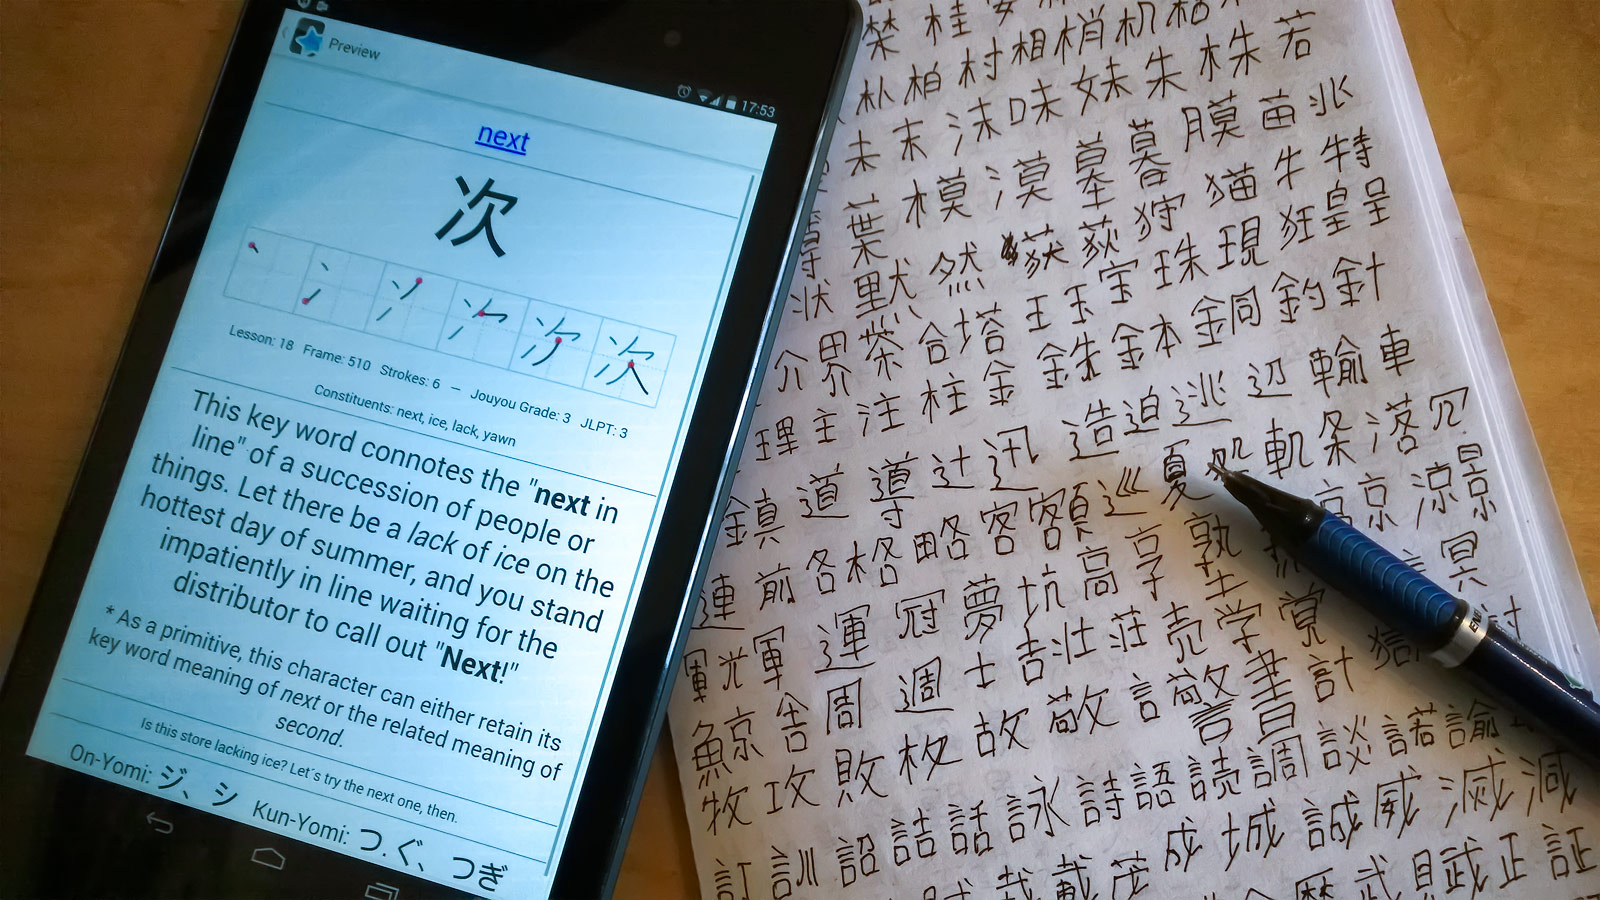 Preview
17:53
next
次
Lesson: 18 Frame: 510 Strokes: 6 – Jouyou Grade: 3 JLPT: 3
Constituents: next, ice, lack, yawn
This key word connotes the "next in
line" of a succession of people or
things. Let there be a lack of ice on the
hottest day of summer, and you stand
impatiently in line waiting for the
distributor to call out "Next!"
* As a primitive, this character can either retain its
key word meaning of next or the related meaning of
second.
Is this store lacking ice? Let´s try the next one, then.
On-Yomi: ジ、シ Kun-Yomi: つ.ぐ、つぎ
桂
朴 柏 村 相 梢 机
未 末 沫 味 妹 朱 株 若
葉 模 漠 墓 暮 膜 苗 兆
状 黙 然 荻 狩 猫 牛 特
介 界 茶 合 塔 王 玉 宝 珠 現 狂 皇 呈
理 主 注 柱 金 銖 鉢 銅 釣 針
鎮 道 導 辻 迅 造 迫 逃 辺 輸 車
連 前 各 格 略 客 額 巡 夏 処 軌 条 落 冗
軍 光 軍 運 冠 夢 坑 高 享 塾 京 涼 景
鯨 舎 周 週 士 吉 壮 荘 売 学 覚 冥
牧 攻 敗 枚 故 敬 言 敬 警 計
訂 訓 詔 詰 話 詠 詩 語 読 調 談 諾 諭
載 茂 成 城 誠 威 滅 減
歴 武 賦 正 証